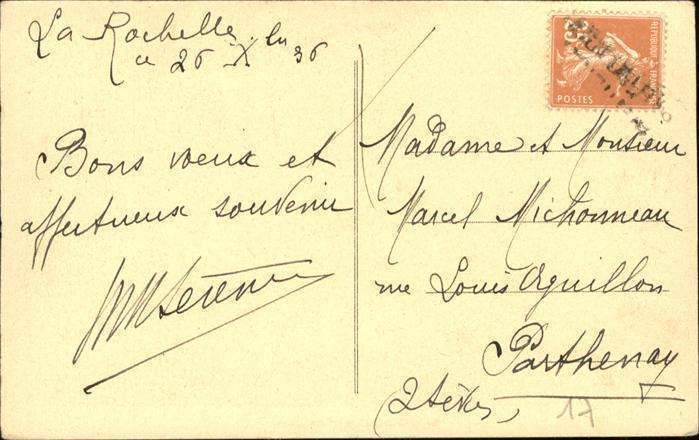 La Rochelle
26 X 36
Bons voeux et
affectueux souvenir
REPUBLIQUE FRANCAISE
POSTES
Madame et Monsieur
Marcel Michonneau
rue Louis Aguillon
Parthenay
2 Sèvres,
17